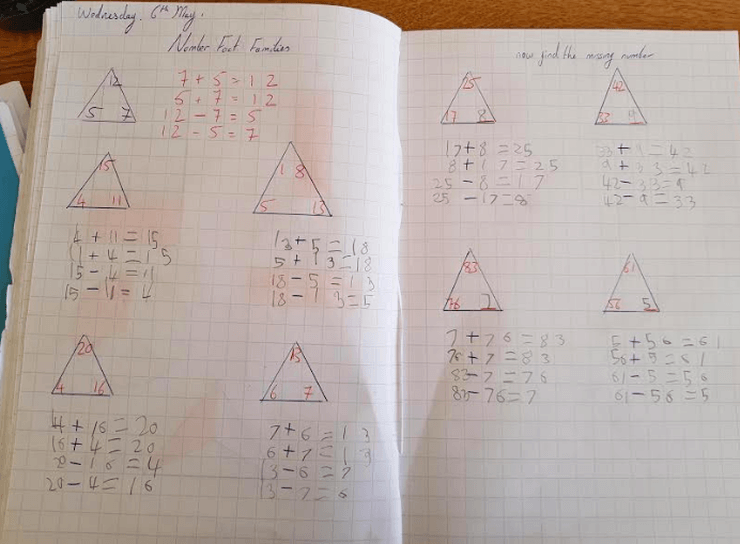 Wednesday, 6th May.
Number Fact Families
12
5 7
7 + 5 = 12
5 + 7 = 12
12 - 7 = 5
12 - 5 = 7
15
4 11
4 + 11 = 15
11 + 4 = 15
15 - 4 = 11
15 - 11 = 4
18
5 13
13 + 5 = 18
5 + 13 = 18
18 - 5 = 13
18 - 13 = 5
20
4 16
4 + 16 = 20
16 + 4 = 20
20 - 16 = 4
20 - 4 = 16
13
6 7
7 + 6 = 13
6 + 7 = 13
13 - 6 = 7
13 - 7 = 6
now find the missing number
25
17 8
17 + 8 = 25
8 + 17 = 25
25 - 8 = 17
25 - 17 = 8
42
33 9
33 + 9 = 42
9 + 33 = 42
42 - 33 = 9
42 - 9 = 33
83
76 7
7 + 76 = 83
76 + 7 = 83
83 - 7 = 76
83 - 76 = 7
61
56 5
5 + 56 = 61
56 + 5 = 61
61 - 5 = 56
61 - 56 = 5